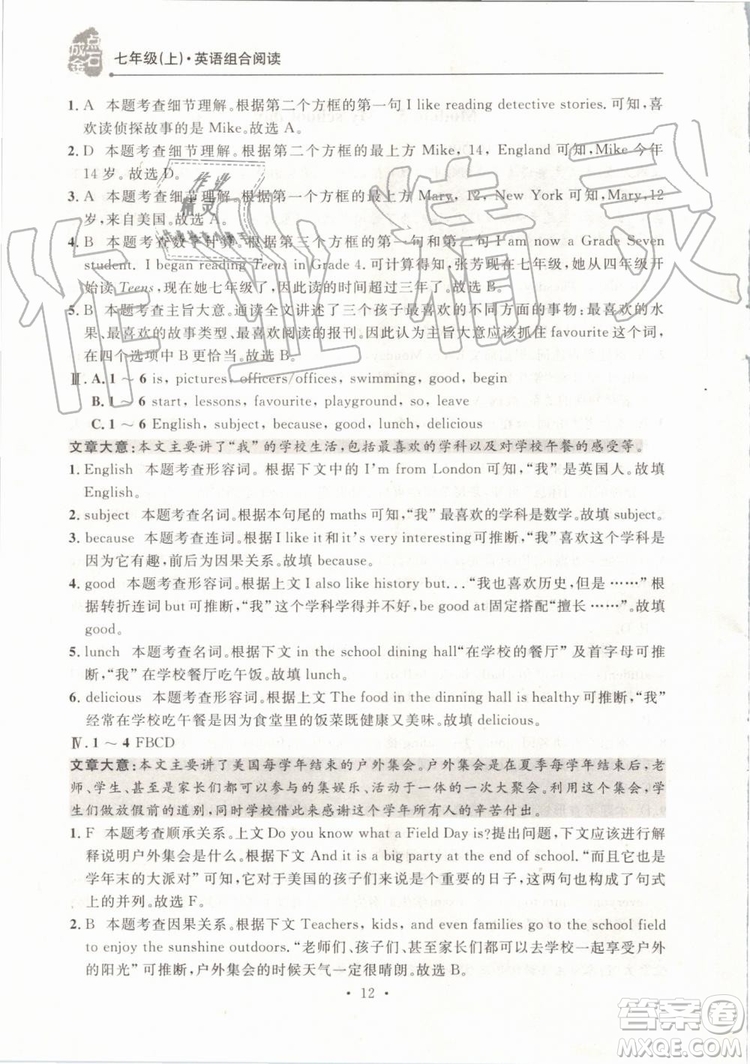 点石成金
七年级(上)·英语组合阅读
1. A 本题考查细节理解。根据第二个方框的第一句 I like reading detective stories. 可知,喜
欢读侦探故事的是 Mike。故选 A。
2. D 本题考查细节理解。根据第二个方框的最上方 Mike, 14, England 可知, Mike 今年
14 岁。故选 D。
3. A 本题考查细节理解。根据第一个方框的最上方 Mary, 12, New York 可知, Mary, 12
岁,来自美国。故选 A。
4. B 本题考查数字计算。根据第三个方框的第一句和第二句 I am now a Grade Seven
student. I began reading Teens in Grade 4. 可计算得知,张芳现在七年级,她从四年级开
始读 Teens,现在她七年级了,因此读的时间超过三年了。故选 B。
5. B 本题考查主旨大意。通读全文讲述了三个孩子最喜欢的不同方面的事物:最喜欢的水
果、最喜欢的故事类型、最喜欢阅读的报刊。因此主旨大意应该抓住 favourite 这个词,
在四个选项中 B 更恰当。故选 B。
Ⅲ. A. 1～6 is, pictures, officers/offices, swimming, good, begin
B. 1～6 start, lessons, favourite, playground, so, leave
C. 1～6 English, subject, because, good, lunch, delicious
文章大意:本文主要讲了“我”的学校生活,包括最喜欢的学科以及对学校午餐的感受等。
1. English 本题考查形容词。根据下文中的 I'm from London 可知,“我”是英国人。故填
English。
2. subject 本题考查名词。根据本句句尾的 maths 可知,“我”最喜欢的学科是数学。故填 subject。
3. because 本题考查连词。根据 I like it 和 it's very interesting 可推断,“我”喜欢这个学科是
因为它有趣,前后为因果关系。故填 because。
4. good 本题考查形容词。根据上文 I also like history but... “我也喜欢历史,但是……”根
据转折连词 but 可推断,“我”这个学科学得并不好, be good at 固定搭配“擅长……”。故填
good。
5. lunch 本题考查名词。根据下文 in the school dining hall“在学校的餐厅”及首字母可推
断,“我”在学校餐厅吃午饭。故填 lunch。
6. delicious 本题考查形容词。根据下文 The food in the dinning hall is healthy 可推断,“我”
经常在学校吃午餐是因为食堂里的饭菜既健康又美味。故填 delicious。
Ⅳ. 1～4 FBCD
文章大意:本文主要讲了美国每学年结束的户外集会。户外集会是在夏季每学年结束后,老
师、学生、甚至是家长们参加的集娱乐、活动于一体的一次大聚会。利用这个集会,学
生们做放假前的道别,同时学校借此感谢这个学年所有人的辛苦付出。
1. F 本题考查顺承关系。上文 Do you know what a Field Day is?提出问题,下文应该进行解
释说明户外集会是什么。根据下文 And it is a big party at the end of school.“而且它还是
学年末的大派对”可推断,它对于美国的孩子们来说是一个重要的日子,而且构成了句式
上的并列。故选 F。
2. B 本题考查因果关系。根据下文 Teachers, kids, and even families go to the school field
to enjoy the sunshine outdoors. “老师们、孩子们、甚至家长们去学校一起享受户外
的阳光”可推断,户外集会的时候天气一定很晴朗。故选 B。
· 12 ·
作业精灵
作业
精灵
答案圈
MXQE.COM